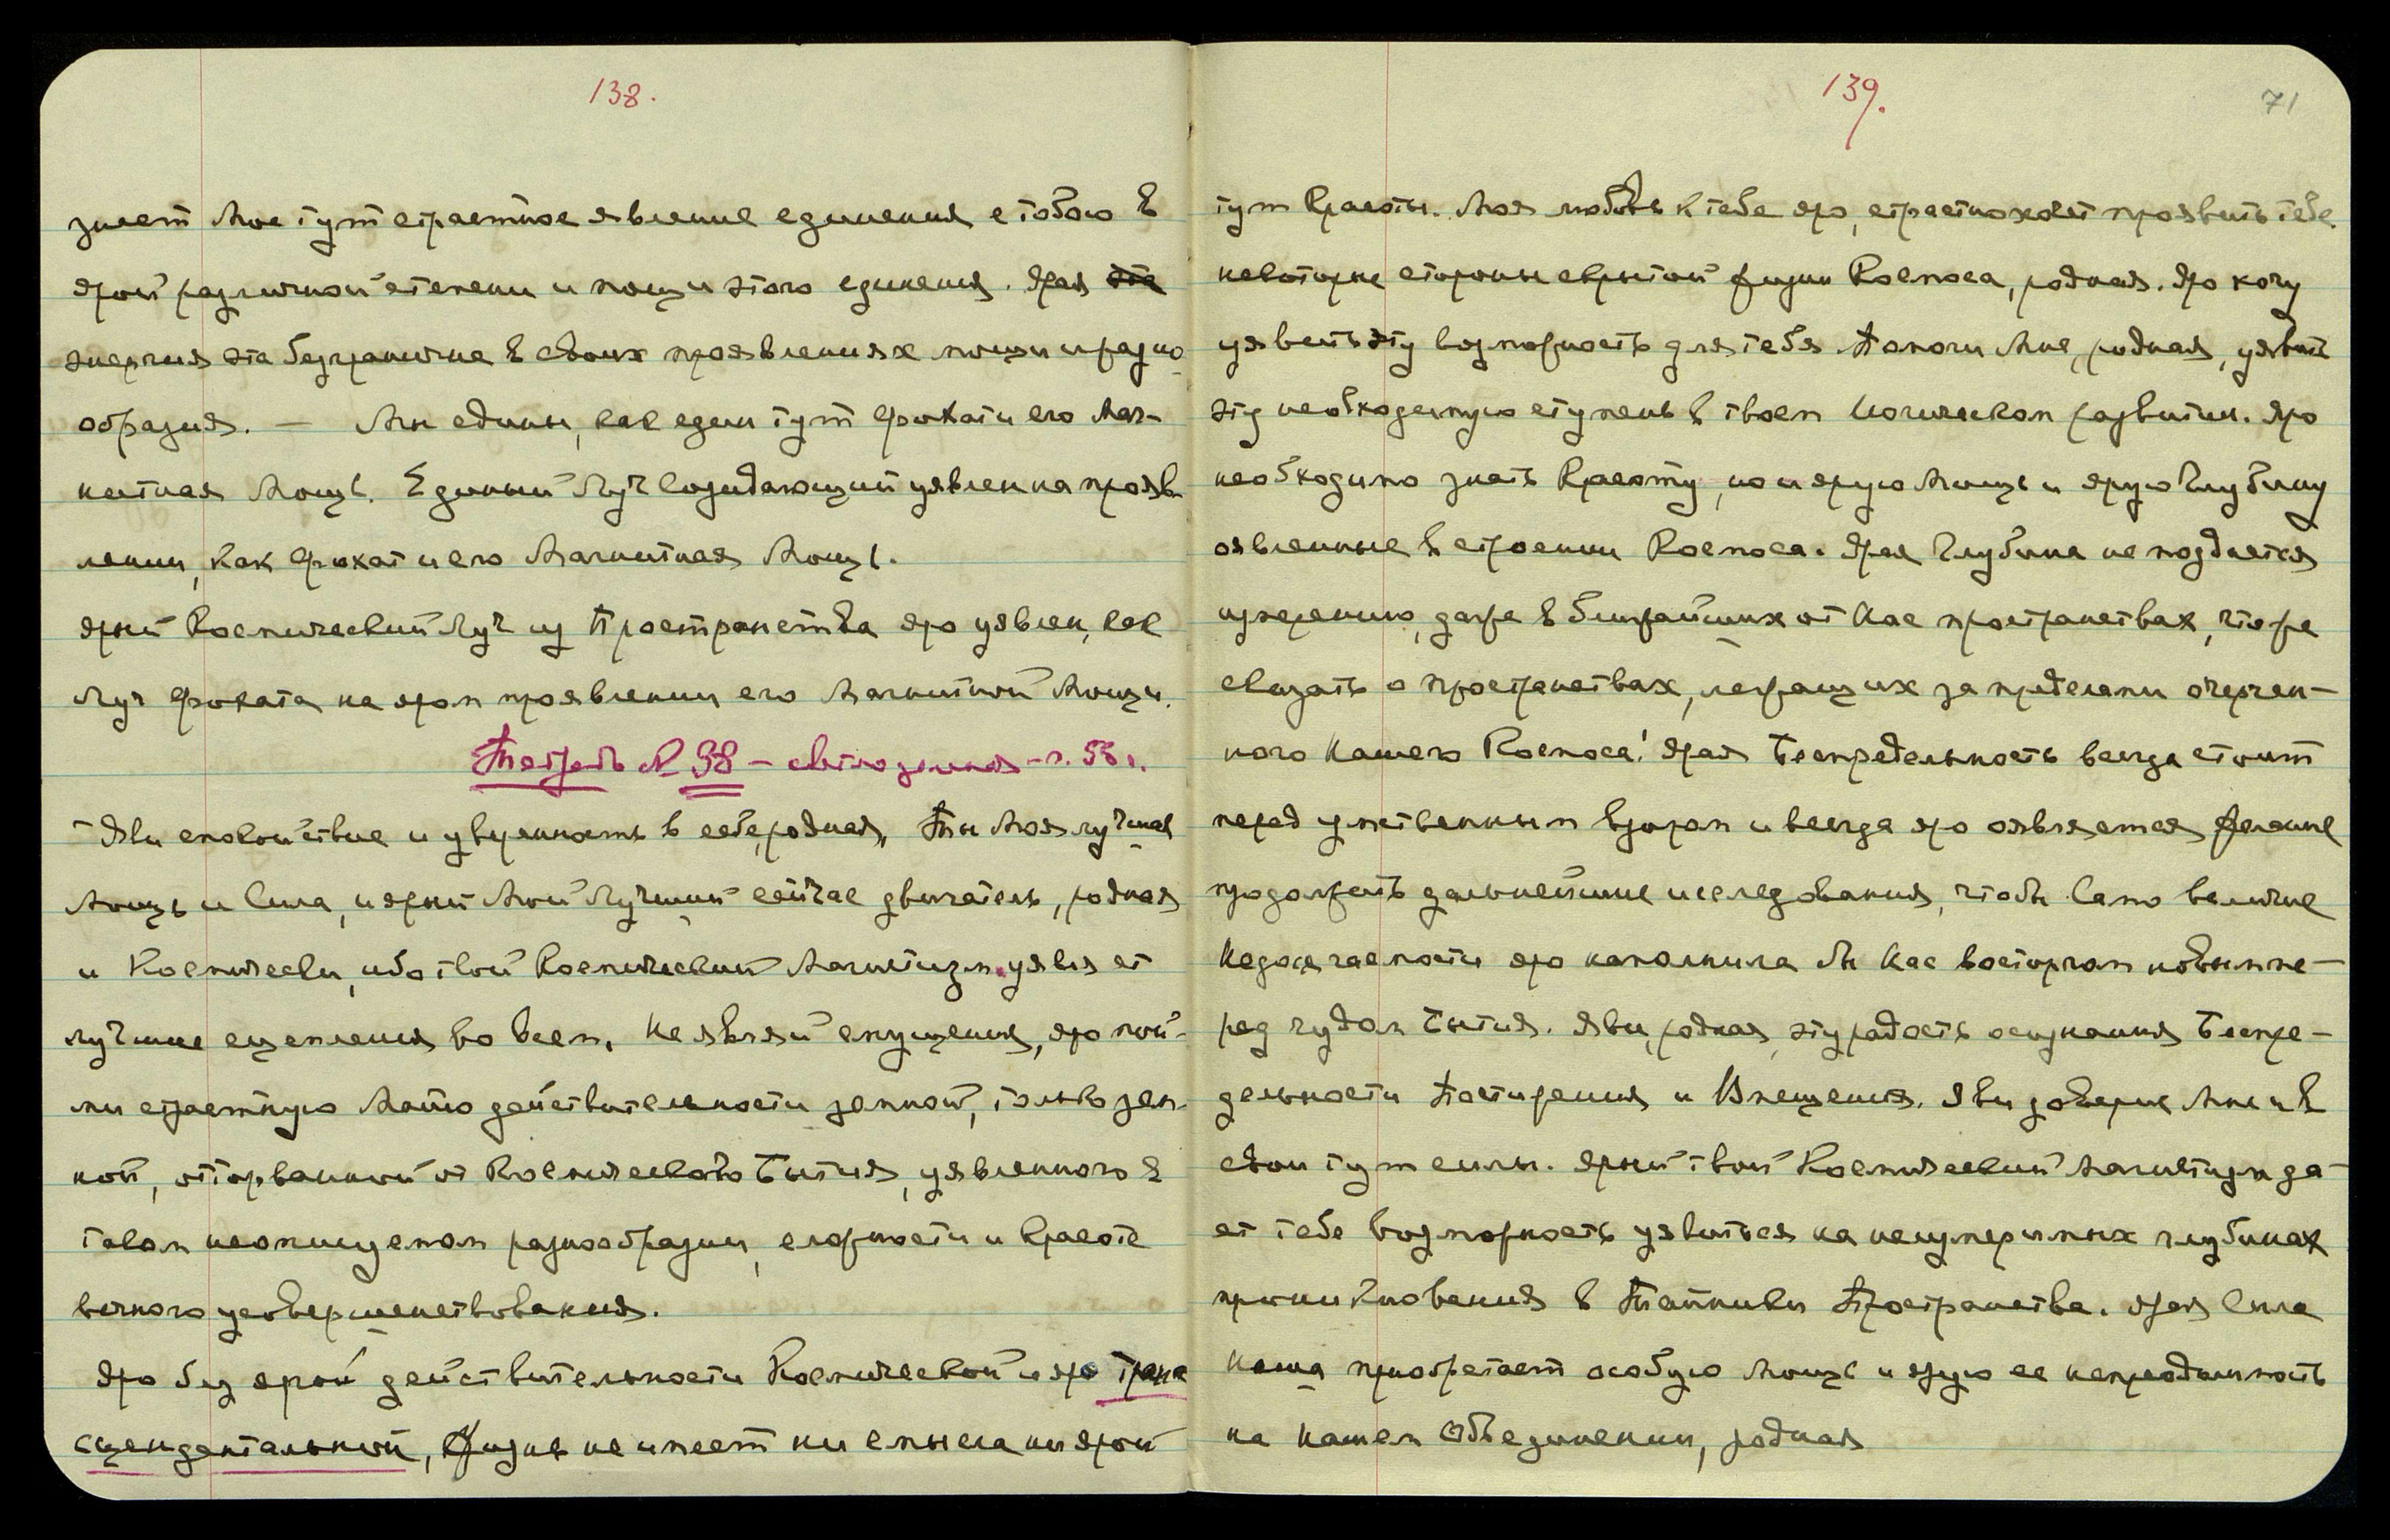 138.
знает Мое тут страстное явление единения с тобою в
ярой различной степени и мощи этого единения. Ярая эта
энергия эта безгранична в своих проявлениях мощи и разно-
образия. — Мы едины, как един тут Фохат и его Маг-
нитная Мощь. Единый Луч Созидающий уявлен на прояв-
лении, как Фохат и его Магнитная Мощь.
Ярый Космический Луч из Пространства яро уявлен, как
Луч Фохата на яром проявлении его Магнитной Мощи.
Тетрадь № 38 – светло зеленая – г. 53 г.
Яви спокойствие и уверенность в себе, родная, Ты Моя лучшая
Мощь и Сила, и ярый Мой Лучший сейчас двигатель, родная
и Космически, ибо твой Космический Магнетизм уявляет
лучшие сцепления во всем. Не являй смущения, яро пой-
ми страстную Майю действительности земной, только зем-
ной, оторванной от Космического Бытия, уявленного в
таком неописуемом разнообразии, сложности и Красоте
вечного усовершенствования.
Яро без ярой действительности Космической и яро транс
сцендентальной, Жизнь не имеет ни смысла ни ярой
139.
71
тут Красоты. Моя любовь к тебе яро, страстно хочет проявить тебе
некоторые стороны скрытой Жизни Космоса, родная. Яро хочу
уявить эту возможность для тебя Помоги Мне, родная, уявить
эту необходимую ступень в твоем Йогическом развитии. Яро
необходимо знать Красоту, но и ярую Мощь и ярую Глубину
оявленные в строении Космоса. Ярая Глубина не поддается
измерению, даже в ближайших от Нас пространствах, что же
сказать о пространствах, лежащих за пределами очерчен-
ного Нашего Космоса! Ярая Беспредельность всегда стоит
перед умственным взором и всегда яро оявляется желание
продолжить дальнейшие исследования, чтобы Само величие
Недосягаемости яро наполнила бы Нас восторгом новым пе-
ред чудом Бытия. Яви, родная, эту радость осознания Беспре-
дельности Постижения и Вмещения. Яви доверие Мне и в
свои тут силы. Ярый твой Космический Магнетизм да-
ет тебе возможность уявиться на неизмеримых глубинах
проникновения в Тайники Пространства. Ярая Сила
Наша приобретает особую Мощь и ярую ее непреодолимость
на Нашем Объединении, родная